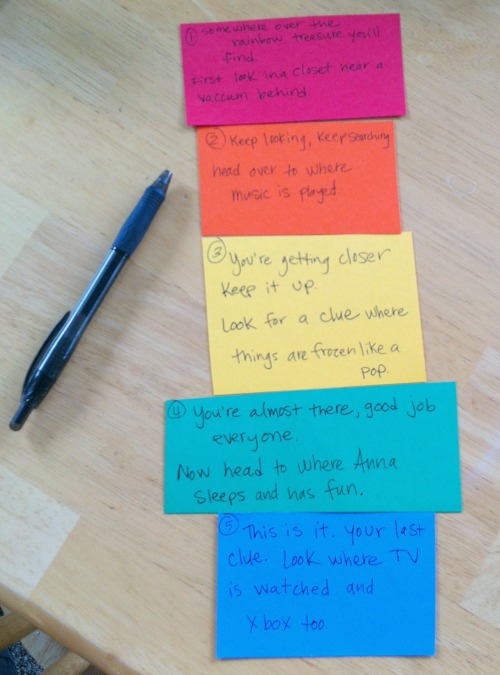 ① somewhere over the
rainbow, treasure you'll
find.
First look in a closet near a
vaccum behind.
② Keep looking, keep searching
head over to where
music is played.
③ You're getting closer
keep it up.
Look for a clue where
things are frozen like a
pop.
④ You're almost there, good job
everyone.
Now head to where Anna
sleeps and has fun.
⑤ This is it. your last
clue. Look where TV
is watched and
x box too